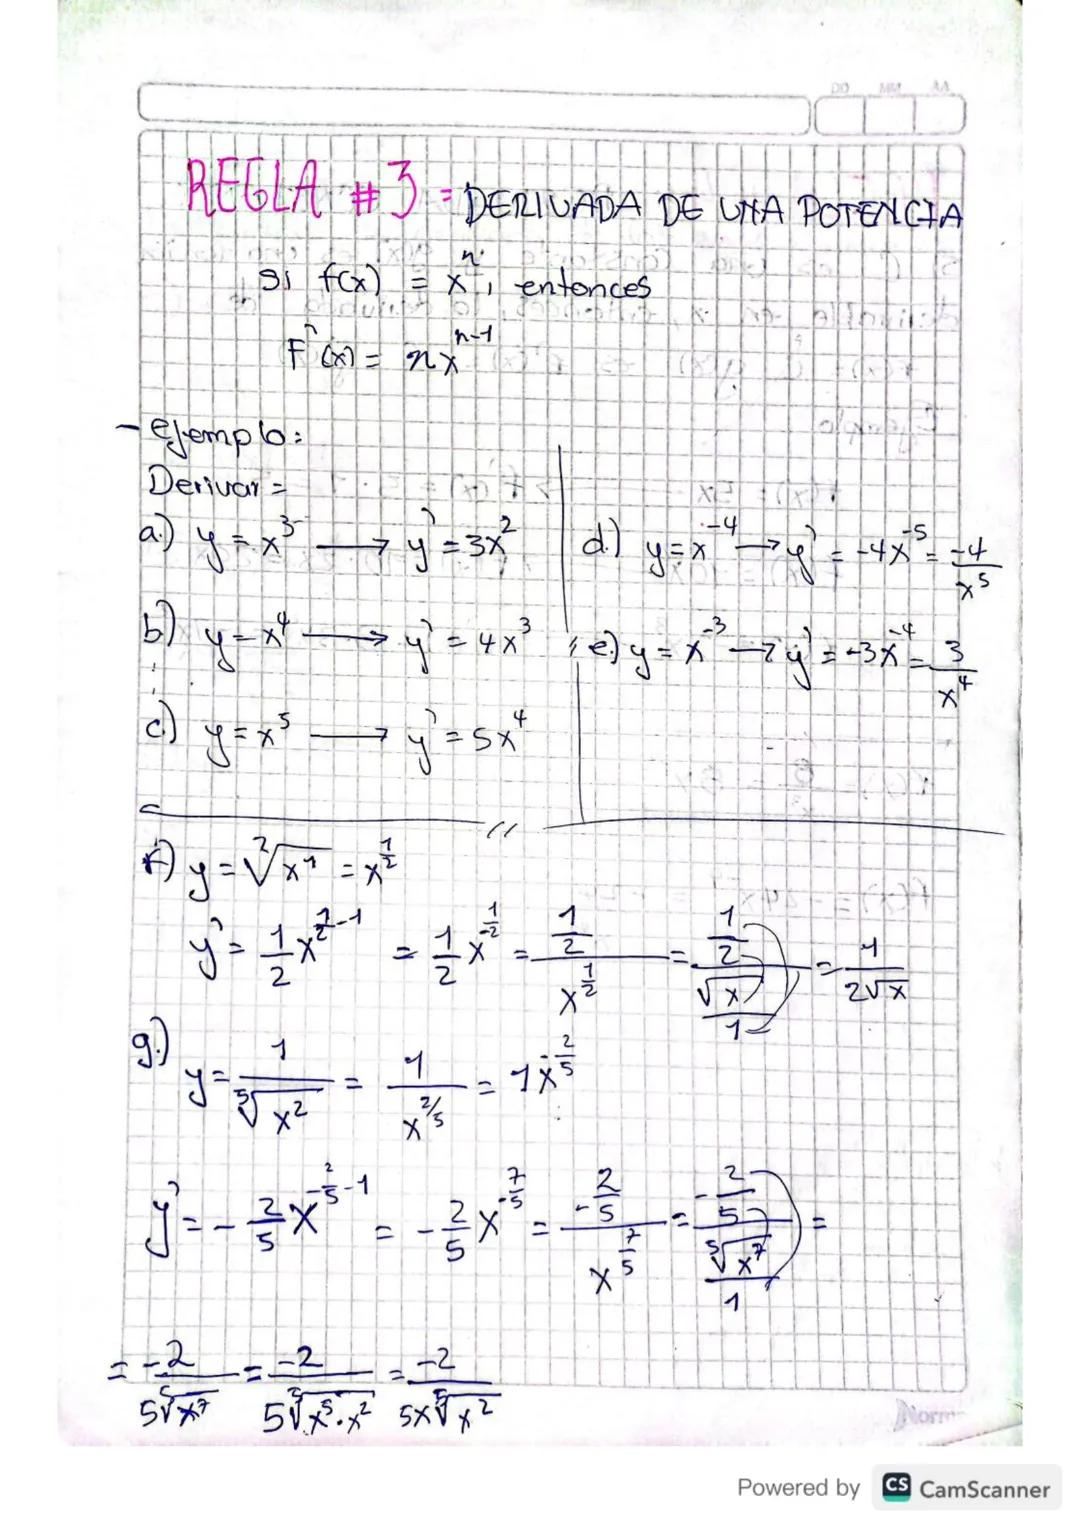 DD MM AA
REGLA #3 = DERIVADA DE UNA POTENCIA
Si f(x) = x^n, entonces
F'(x) = nx^(n-1)
- ejemplo:
Derivar =
a.) y = x^3 → y' = 3x^2
b) y = x^4 → y' = 4x^3
c.) y = x^5 → y' = 5x^4
d.) y = x^-4 → y' = -4x^-5 = -4/x^5
e.) y = x^-3 → y' = -3x^-4 = 3/x^4
f) y = ²√x^1 = x^(1/2)
y' = 1/2 x^(1/2 - 1) = 1/2 x^(-1/2) = (1/2)/x^(1/2) = (1/2)/(√x/1) = 1/(2√x)
g.) y = 1/⁵√x^2 = 1/x^(2/5) = 1x^(-2/5)
y' = -2/5 x^(-2/5 - 1) = -2/5 x^(-7/5) = (-2/5)/x^(7/5) = (-2/5)/(⁵√x^7/1) =
= -2/(5⁵√x^7) = -2/(5⁵√x^5·x^2) = -2/(5x⁵√x^2)
Norm
Powered by CS CamScanner